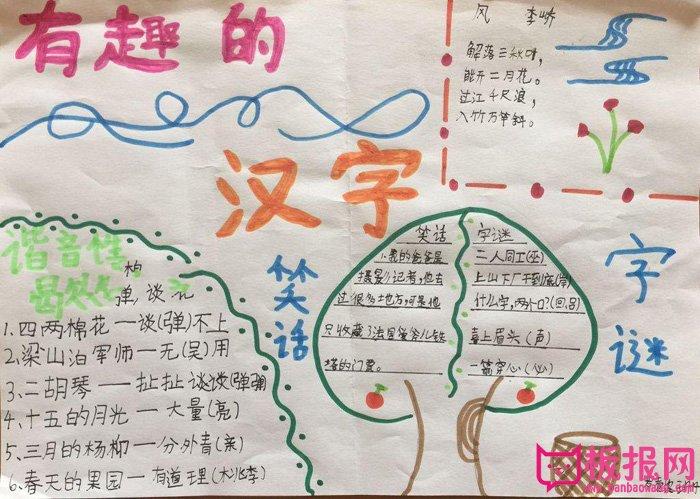 有趣的
汉字
风 李峤
解落三秋叶，
能开二月花。
过江千尺浪，
入竹万竿斜。
谐音性
弹，谈
1.四两棉花一谈(弹)不上
2.梁山泊军师一无(吴)用
3.二胡琴——扯扯谈谈(弹弹)
4.十五的月光一大量(亮)
5.三月的杨柳一分外青(亲)
6.春天的果园一有道理(桃李)
笑话
笑话
我的爸爸是
摄影记者,他去
过很多地方,可是他
只收藏了法国埃菲儿铁
塔的门票。
字谜
二人同工(坐)
上山下厂干到底(岸)
什么字,两个口?(回,吕)
喜上眉头(声)
一箭穿心(必)
字谜
板报网
banbaowang.com